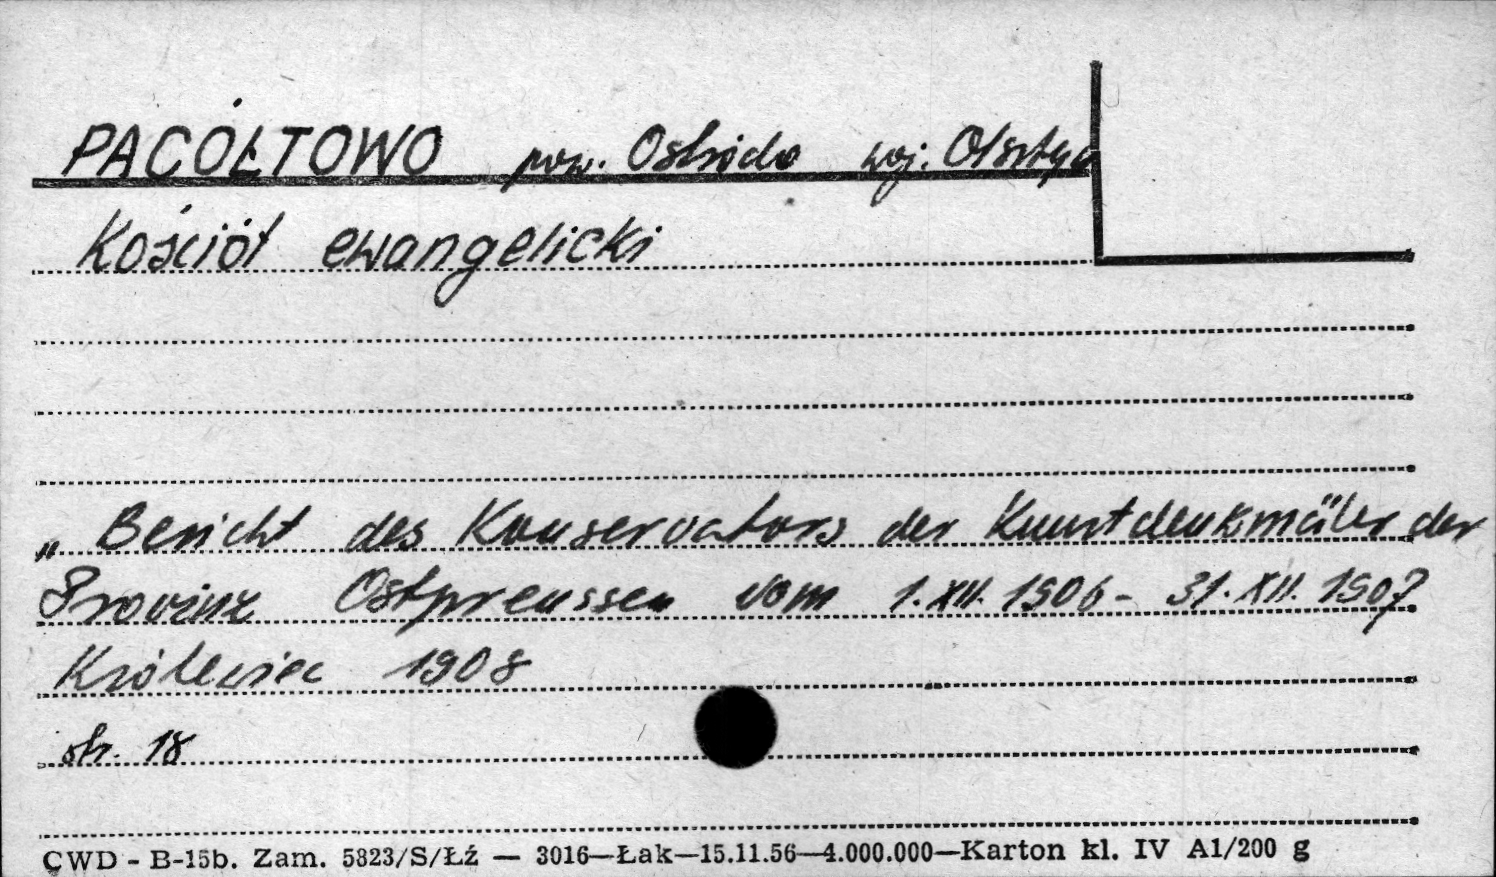 PACÓŁTOWO pow. Ostróda woj. Olsztyn
Kościół ewangelicki
„Bericht des Konservators der Kunstdenkmäler der
Provinz Ostpreussen vom 1.XII.1906 - 31.XII.1907
Królewiec 1908
str. 18
CWD - B-15b. Zam. 5823/S/Łź — 3016—Łak—15.11.56—4.000.000—Karton kl. IV A1/200 g